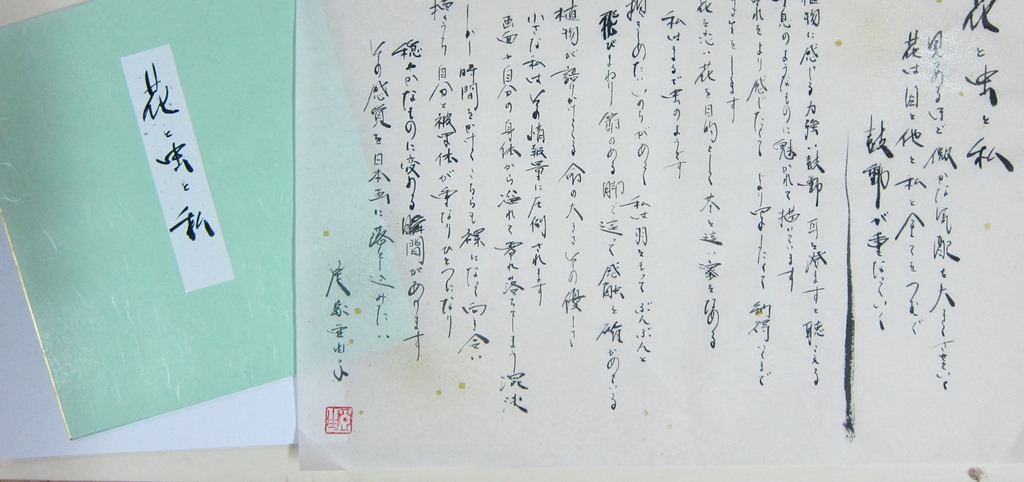 花と虫と私
見つめるほど 微かな気配も大きくさせていく
花は 他と私と全てをつなぐ
鼓動が重なっていく
植物に感じる力強い鼓動 耳を澄ますと聴こえる
息のようなものに魅かれて描いています
それをより感じたくて より写したくて 納得いくまで
します
花を思い 花を目的として 茎を這い 蜜をなめる
私はまるで虫のようです
いのちがあって 私は羽をもって ぶんぶんと
飛びまわり 節のある脚で這って 感触を確かめている
植物が語りかけてくる 命の大きさ その優しさ
小さな私はその情報量に圧倒されます
画面や自分の身体から溢れて零れ落ちてしまう混沌
しかし 時間をかけて こちらも裸になって 向き合い
描くうち 自分と被写体が重なりひとつになり
穏やかなものに変わる瞬間があります
その感覚を日本画に落とし込みたい
花と虫と私